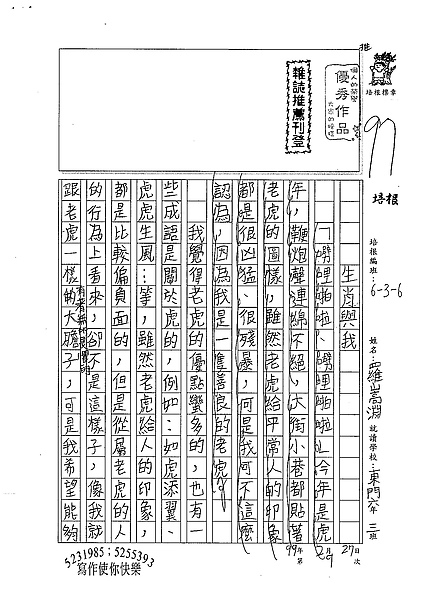 推
個人的榮譽
優秀作品
大家的榜樣
雜誌推薦刊登
培根標章
97
培根
培根編班:6-3-6
姓名:羅嵩淵
就讀學校:東門六年三班
99年2月27日
第 次
生肖與我
「嚗哩啪啦、嚗哩啪啦」今年是虎
年,鞭炮聲連綿不絕,大街小巷都貼著
老虎的圖樣,雖然老虎給平常人的印象
都是很凶猛、很殘暴,可是我可不這麼
認為,因為我是一隻善良的老虎。
我覺得老虎的優點蠻多的,也有一
些成語是關於虎的,例如:如虎添翼、
虎虎生風…等,雖然老虎給人的印象,
都是比較偏負面的,但是從屬老虎的人
的行為上看來,卻不是這樣子,像我就
跟老虎一樣的大膽子,可是我希望能夠
5231985;5255393
寫作使你快樂